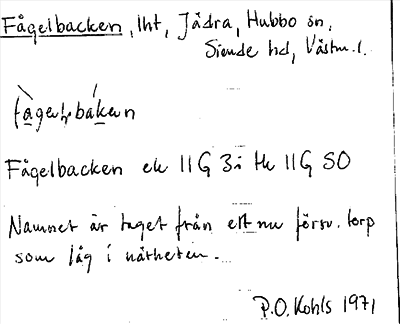 Fågelbacken, lht, Jädra, Hubbo sn,
Siende hd, Västm.l.
Fågelbacken ek 11G 3i tk 11G SO
Namnet är taget från ett nu försv. torp
som låg i närheten.
P.O. Kohls 1971